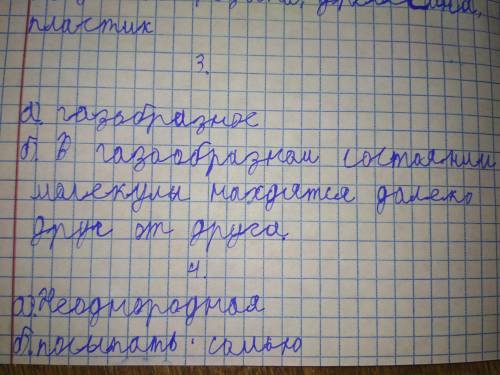 пластик
3.
а) газобразное
б). В газаобразном состоянии
малекулы находятся далеко
друг от друга
4.
а) Неоднородная
б) посыпать солью